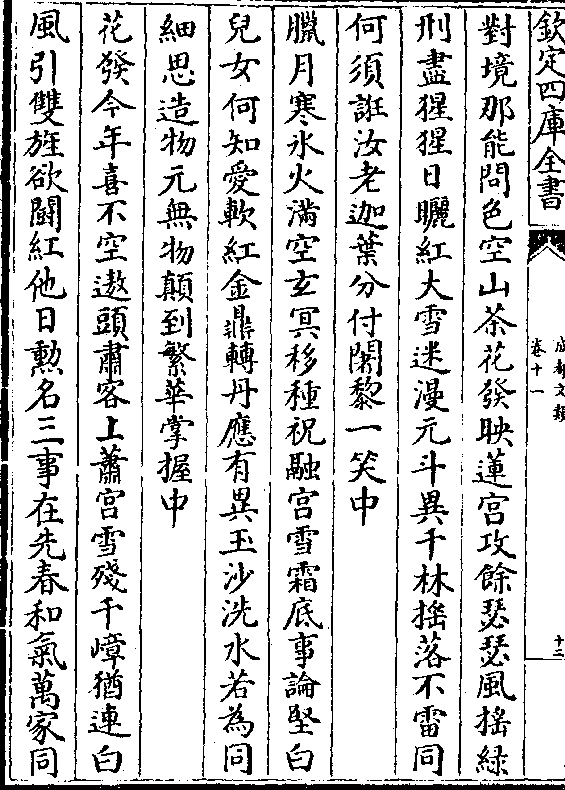 欽定四庫全書
成都文類
卷十一
十二
對境那能問色空山茶花發映蓮宮攻餘瑟瑟風揺緑
刑盡猩猩日曬紅大雪迷漫元斗異千林揺落不雷同
何須誑汝老迦葉分付闍黎一笑中
臘月寒氷火滿空玄冥移種祝融宮雪霜底事論堅白
兒女何知愛軟紅金鼎轉丹應有異玉沙洗水若為同
細思造物元無物顛到繁華掌握中
花發今年喜不空遨頭肅客上蕭宮雪殘千嶂猶連白
風引雙旌欲鬭紅他日勲名三事在先春和氣萬家同